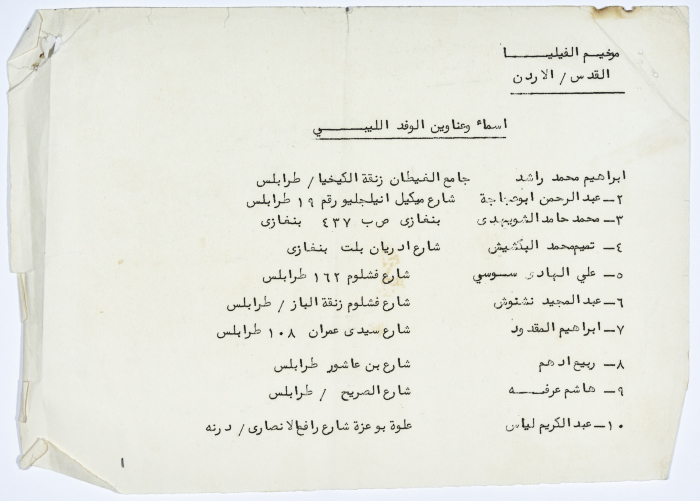 مخيم الفيليا
القدس / الاردن
اسماء وعناوين الوفد الليبي
ابراهيم محمد راشد جامع الغيطان زنقة الكيخيا / طرابلس
٢ــ عبد الرحمن ابوعجاجة شارع ميكيل انيلجليو رقم ١٩ طرابلس
٣ــ محمد حامد الشويهدى بنغازى ص ب ٤٣٧ بنغازى
٤ــ تميم محمد البكشيش شارع ادريان بلت بنغازى
٥ــ علي الهادى سوسي شارع فشلوم ١٦٢ طرابلس
٦ــ عبد المجيد نشنوش شارع فشلوم زنقة الباز / طرابلس
٧ــ ابراهيم المقدود شارع سيدى عمران ١٠٨ طرابلس
٨ــ ربيع ادهم شارع بن عاشور طرابلس
٩ــ هاشم عرفه شارع الصريح / طرابلس
١٠ــ عبد الكريم لياس علوة بوعزة شارع رافع الانصارى / درنه
١